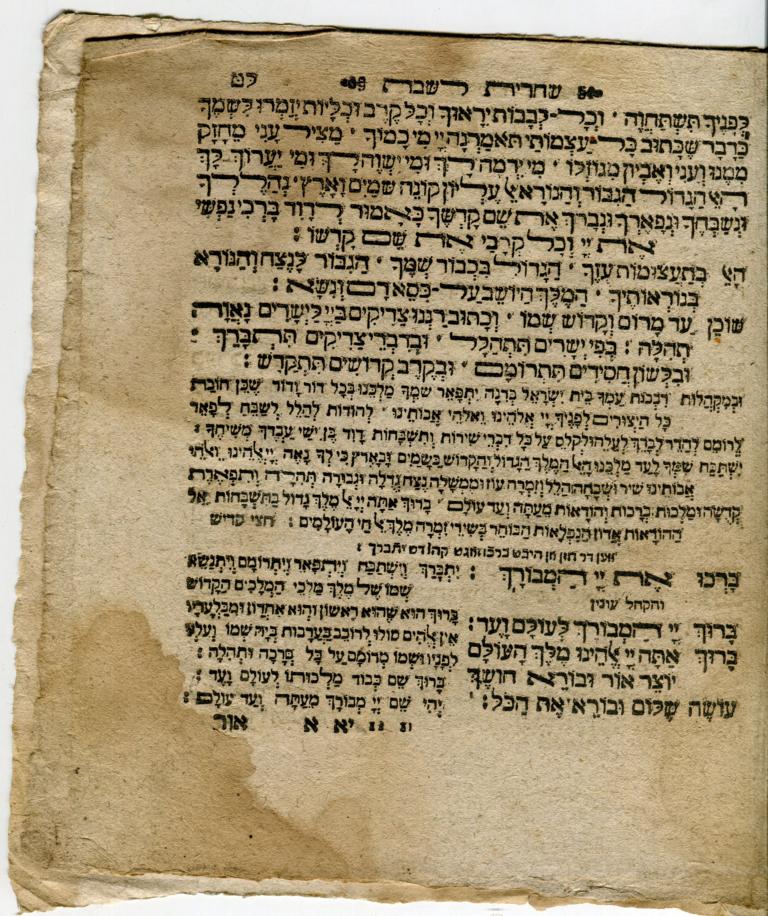 שחרית לשבת לט
לְפָנֶיךָ תִשְׁתַּחֲוֶה · וְכָל לְבָבוֹת יִרָאוּךָ וְכָל קֶרֶב וּכְלָיוֹת יְזַמְּרוּ לִשְׁמֶךָ
כַּדָּבָר שֶׁכָּתוּב כָּל עַצְמוֹתַי תֹּאמַרְנָה יְיָ מִי כָמוֹךָ · מַצִּיל עָנִי מֵחָזָק
מִמֶּנּוּ וְעָנִי וְאֶבְיוֹן מִגּוֹזְלוֹ · מִי יִדְמֶה לָּךְ וּמִי יִשְׁוֶה לָּךְ וּמִי יַעֲרוֹךְ לָךְ
הָאֵל הַגָּדוֹל הַגִּבּוֹר וְהַנּוֹרָא אֵל עֶלְיוֹן קוֹנֵה שָׁמַיִם וָאָרֶץ · נְהַלֶּלְךָ
וּנְשַׁבֵּחֲךָ וּנְפָאֶרְךָ וּנְבָרֵךְ אֶת שֵׁם קָדְשֶׁךָ כָּאָמוּר לְדָוִד בָּרְכִי נַפְשִׁי
אֶת יְיָ וְכָל קְרָבַי אֶת שֵׁם קָדְשׁוֹ :
הָאֵל בְּתַעֲצוּמוֹת עֻזֶּךָ · הַגָּדוֹל בִּכְבוֹד שְׁמֶךָ · הַגִּבּוֹר לָנֶצַח וְהַנּוֹרָא
בְּנוֹרְאוֹתֶיךָ · הַמֶּלֶךְ הַיּוֹשֵׁב עַל כִּסֵּא רָם וְנִשָּׂא :
שׁוֹכֵן עַד מָרוֹם וְקָדוֹשׁ שְׁמוֹ · וְכָתוּב רַנְּנוּ צַדִּיקִים בַּיְיָ לַיְשָׁרִים נָאוָה
תְהִלָּה : בְּפִי יְשָׁרִים תִּתְהַלָּל · וּבְדִבְרֵי צַדִּיקִים תִּתְבָּרַךְ ·
וּבִלְשׁוֹן חֲסִידִים תִּתְרוֹמָם · וּבְקֶרֶב קְדוֹשִׁים תִּתְקַדָּשׁ :
וּבְמַקְהֲלוֹת רִבְבוֹת עַמְּךָ בֵּית יִשְׂרָאֵל בְּרִנָּה יִתְפָּאַר שִׁמְךָ מַלְכֵּנוּ בְּכָל דּוֹר וָדוֹר שֶׁכֵּן חוֹבַת
כָּל הַיְצוּרִים לְפָנֶיךָ יְיָ אֱלֹהֵינוּ וֵאלֹהֵי אֲבוֹתֵינוּ · לְהוֹדוֹת לְהַלֵּל לְשַׁבֵּחַ לְפָאֵר
לְרוֹמֵם לְהַדֵּר לְבָרֵךְ לְעַלֵּה וּלְקַלֵּס עַל כָּל דִּבְרֵי שִׁירוֹת וְתִשְׁבָּחוֹת דָּוִד בֶּן יִשַׁי עַבְדְּךָ מְשִׁיחֶךָ :
יִשְׁתַּבַּח שִׁמְךָ לָעַד מַלְכֵּנוּ הָאֵל הַמֶּלֶךְ הַגָּדוֹל וְהַקָּדוֹשׁ בַּשָּׁמַיִם וּבָאָרֶץ כִּי לְךָ נָאֶה יְיָ אֱלֹהֵינוּ וֵאלֹהֵי
אֲבוֹתֵינוּ שִׁיר וּשְׁבָחָה הַלֵּל וְזִמְרָה עוֹז וּמֶמְשָׁלָה נֶצַח גְּדֻלָּה וּגְבוּרָה תְּהִלָּה וְתִפְאֶרֶת
קְדֻשָּׁה וּמַלְכוּת בְּרָכוֹת וְהוֹדָאוֹת מֵעַתָּה וְעַד עוֹלָם · בָּרוּךְ אַתָּה יְיָ אֵל מֶלֶךְ גָּדוֹל בַּתִּשְׁבָּחוֹת אֵל
הַהוֹדָאוֹת אֲדוֹן הַנִּפְלָאוֹת הַבּוֹחֵר בְּשִׁירֵי זִמְרָה מֶלֶךְ אֵל חֵי הָעוֹלָמִים : חצי קדיש
ווען דר חזן הייבט ברכו זאגט קהל דס יתברך :
בָּרְכוּ אֶת יְיָ הַמְבוֹרָךְ :
והקהל עונין
בָּרוּךְ יְיָ הַמְבוֹרָךְ לְעוֹלָם וָעֶד :
בָּרוּךְ אַתָּה יְיָ אֱלֹהֵינוּ מֶלֶךְ הָעוֹלָם
יוֹצֵר אוֹר וּבוֹרֵא חוֹשֶׁךְ
עוֹשֶׂה שָׁלוֹם וּבוֹרֵא אֶת הַכֹּל :
יִתְבָּרַךְ וְיִשְׁתַּבַּח וְיִתְפָּאַר וְיִתְרוֹמַם וְיִתְנַשֵּׂא
שְׁמוֹ שֶׁל מֶלֶךְ מַלְכֵי הַמְּלָכִים הַקָּדוֹשׁ
בָּרוּךְ הוּא שֶׁהוּא רִאשׁוֹן וְהוּא אַחֲרוֹן וּמִבַּלְעָדָיו
אֵין אֱלֹהִים סוֹלּוּ לָרוֹכֵב בָּעֲרָבוֹת בְּיָהּ שְׁמוֹ וְעִלְזוּ
לְפָנָיו וּשְׁמוֹ מְרוֹמָם עַל כָּל בְּרָכָה וּתְהִלָּה :
בָּרוּךְ שֵׁם כְּבוֹד מַלְכוּתוֹ לְעוֹלָם וָעֶד :
יְהִי שֵׁם יְיָ מְבוֹרָךְ מֵעַתָּה וְעַד עוֹלָם :
יא א אור